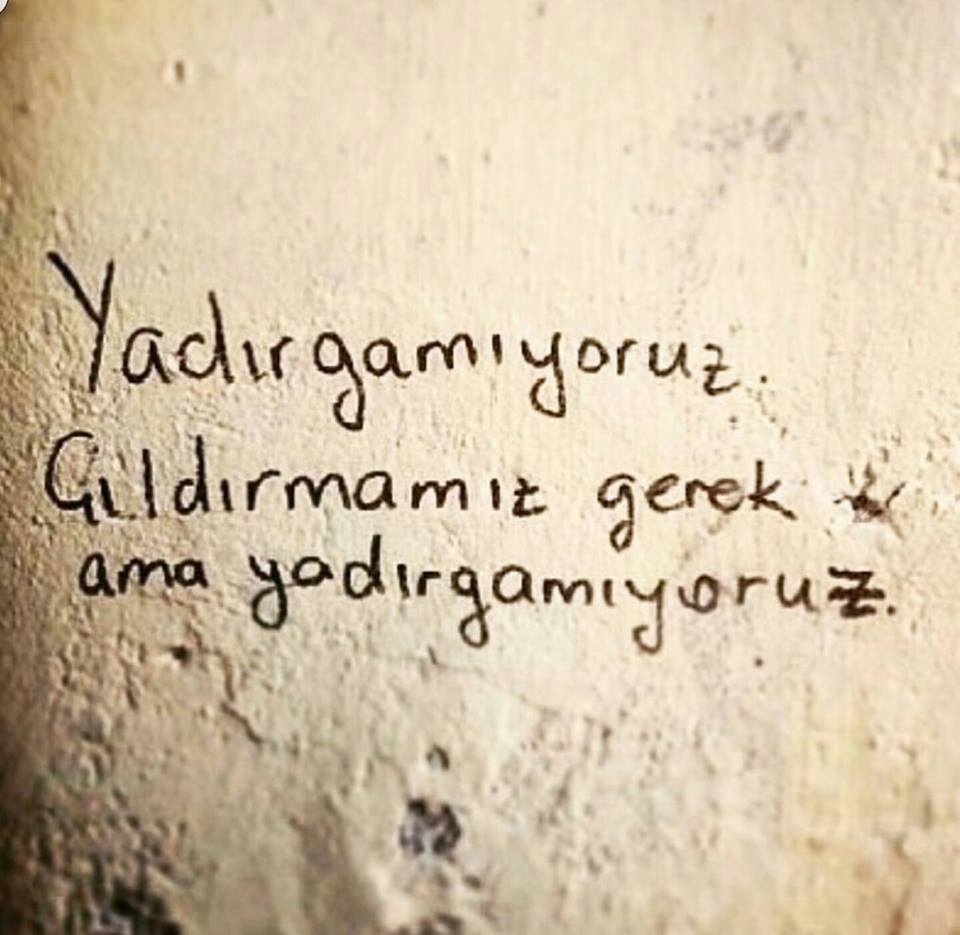 Yadırgamıyoruz.
Çıldırmamız gerek
ama yadırgamıyoruz.